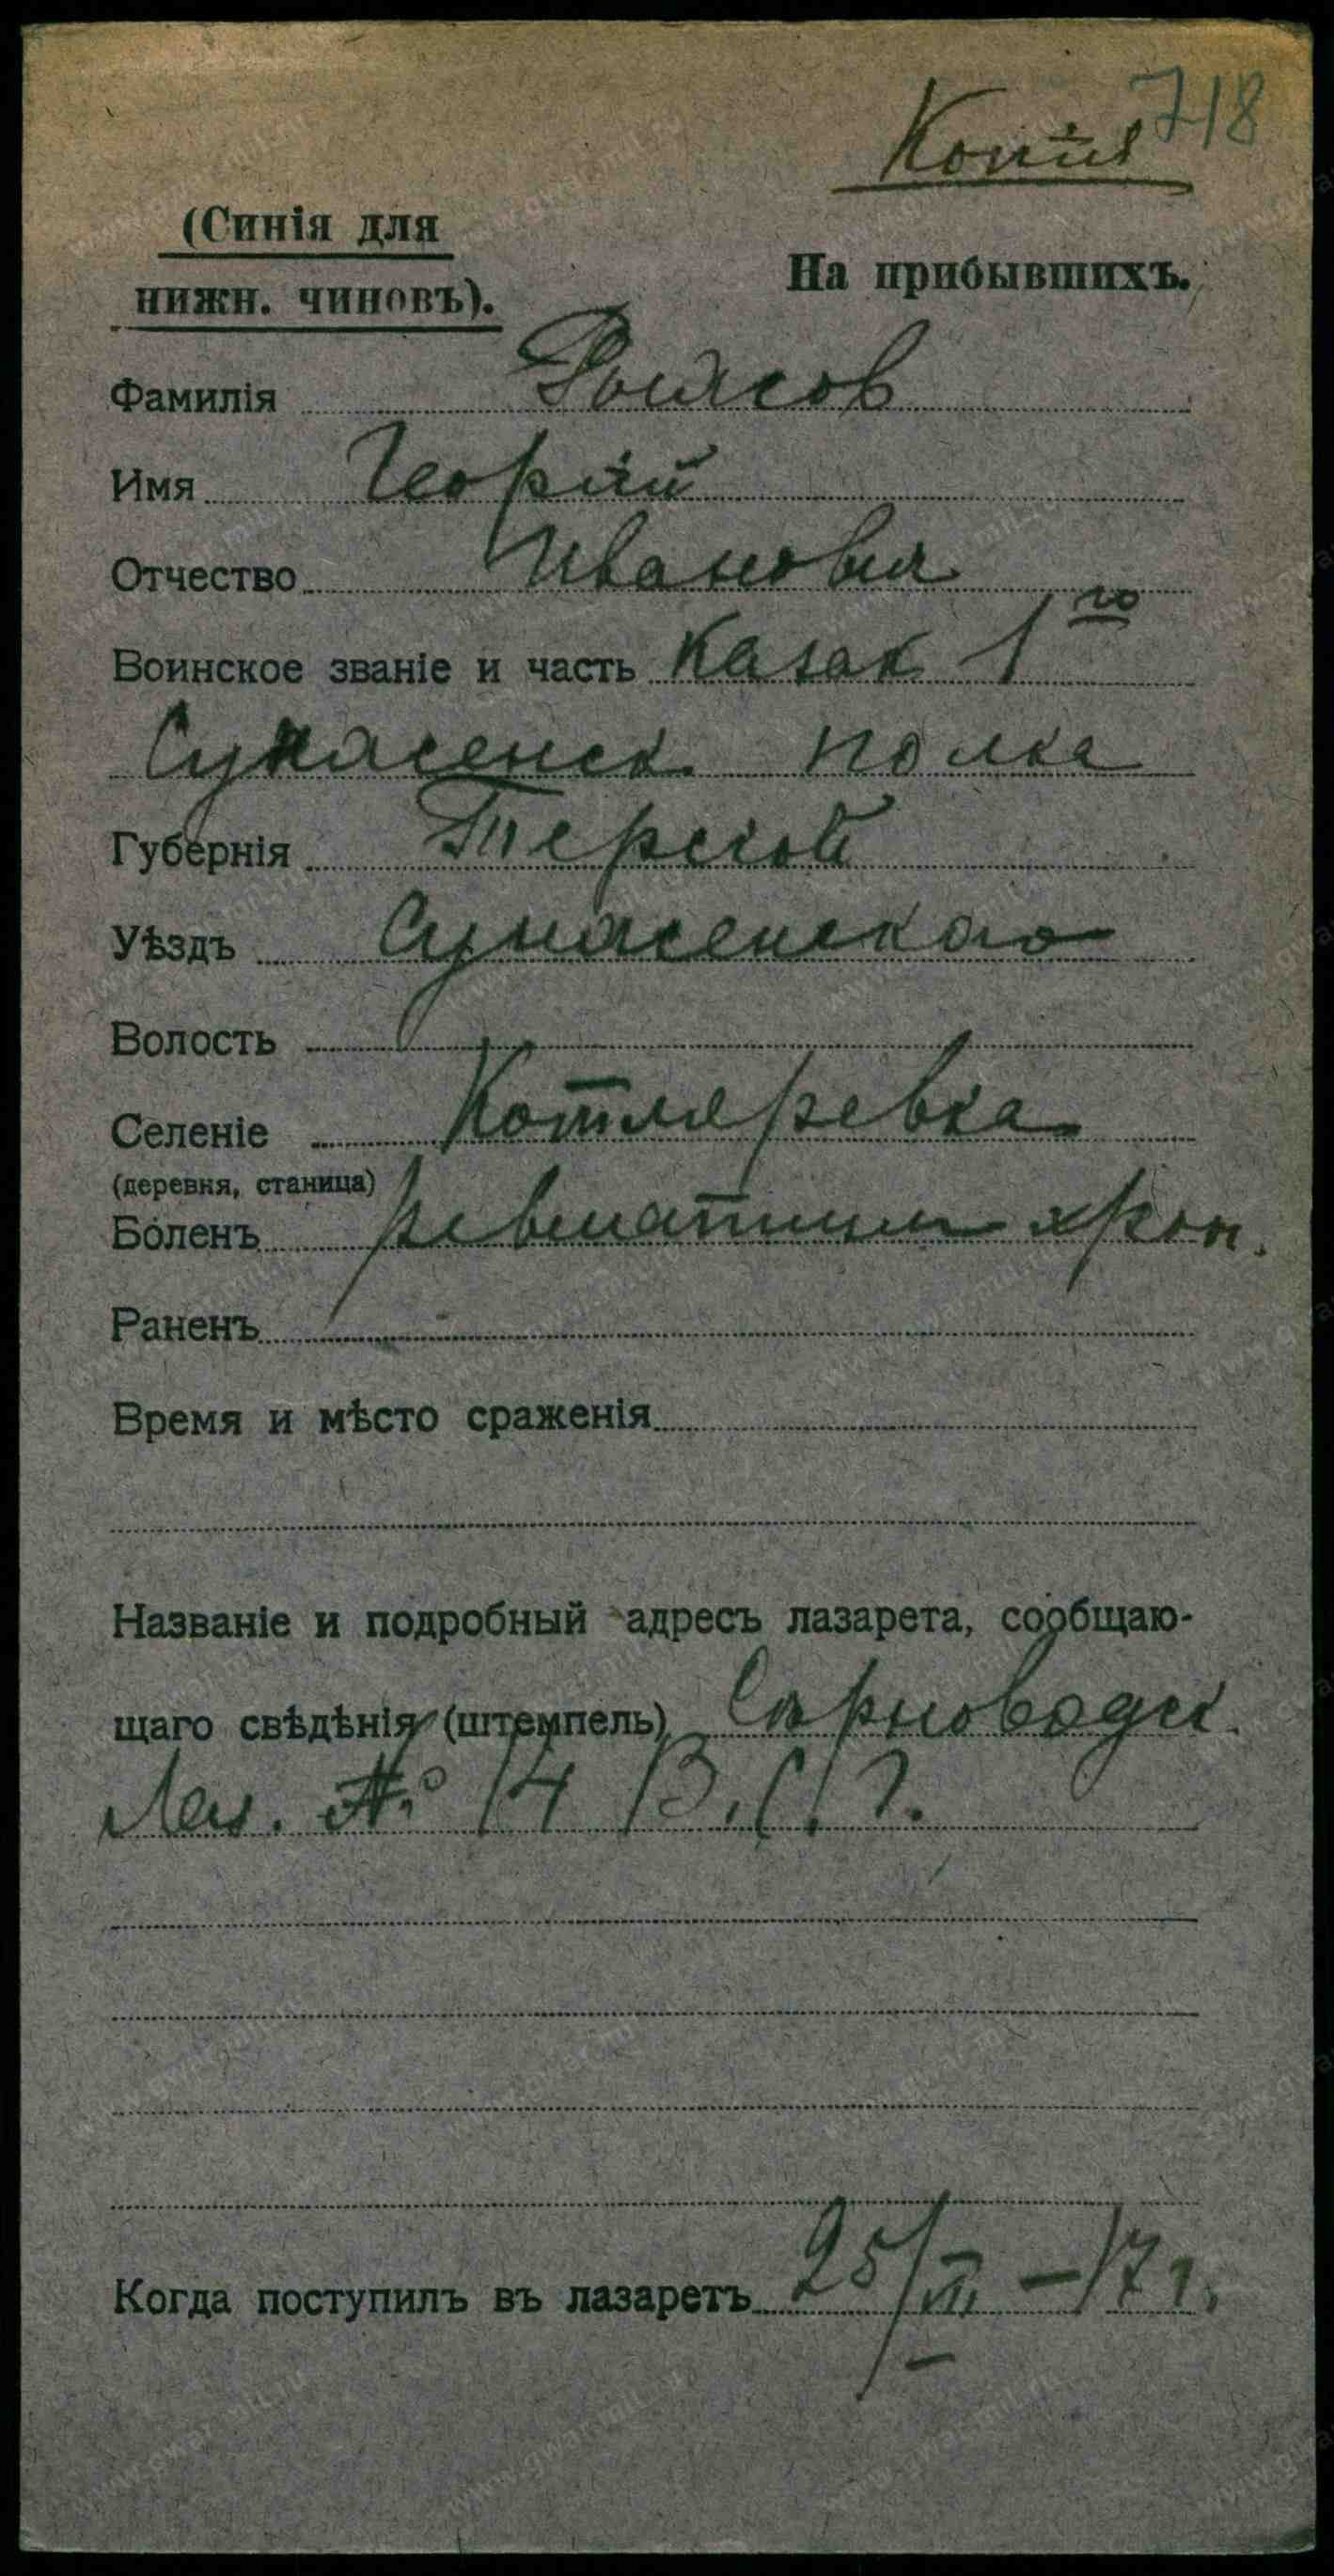 718
Копія
(Синія для
нижн. чиновъ).
На прибывшихъ.
Фамилія
Имя Георгій
Отчество Иванович
Воинское званіе и часть Казак 1го
Сунженск. полка
Губернія Терской
Уѣздъ Сунженскаго
Волость
Селеніе Котляревка
(деревня, станица)
Боленъ ревматизм хрон.
Раненъ
Время и мѣсто сраженія
Названіе и подробный адресъ лазарета, сообщаю-
щаго свѣдѣнія (штемпель) Сѣрноводск.
№ 14 В.С.Г.
Когда поступилъ въ лазаретъ 25/VII – 17 г.